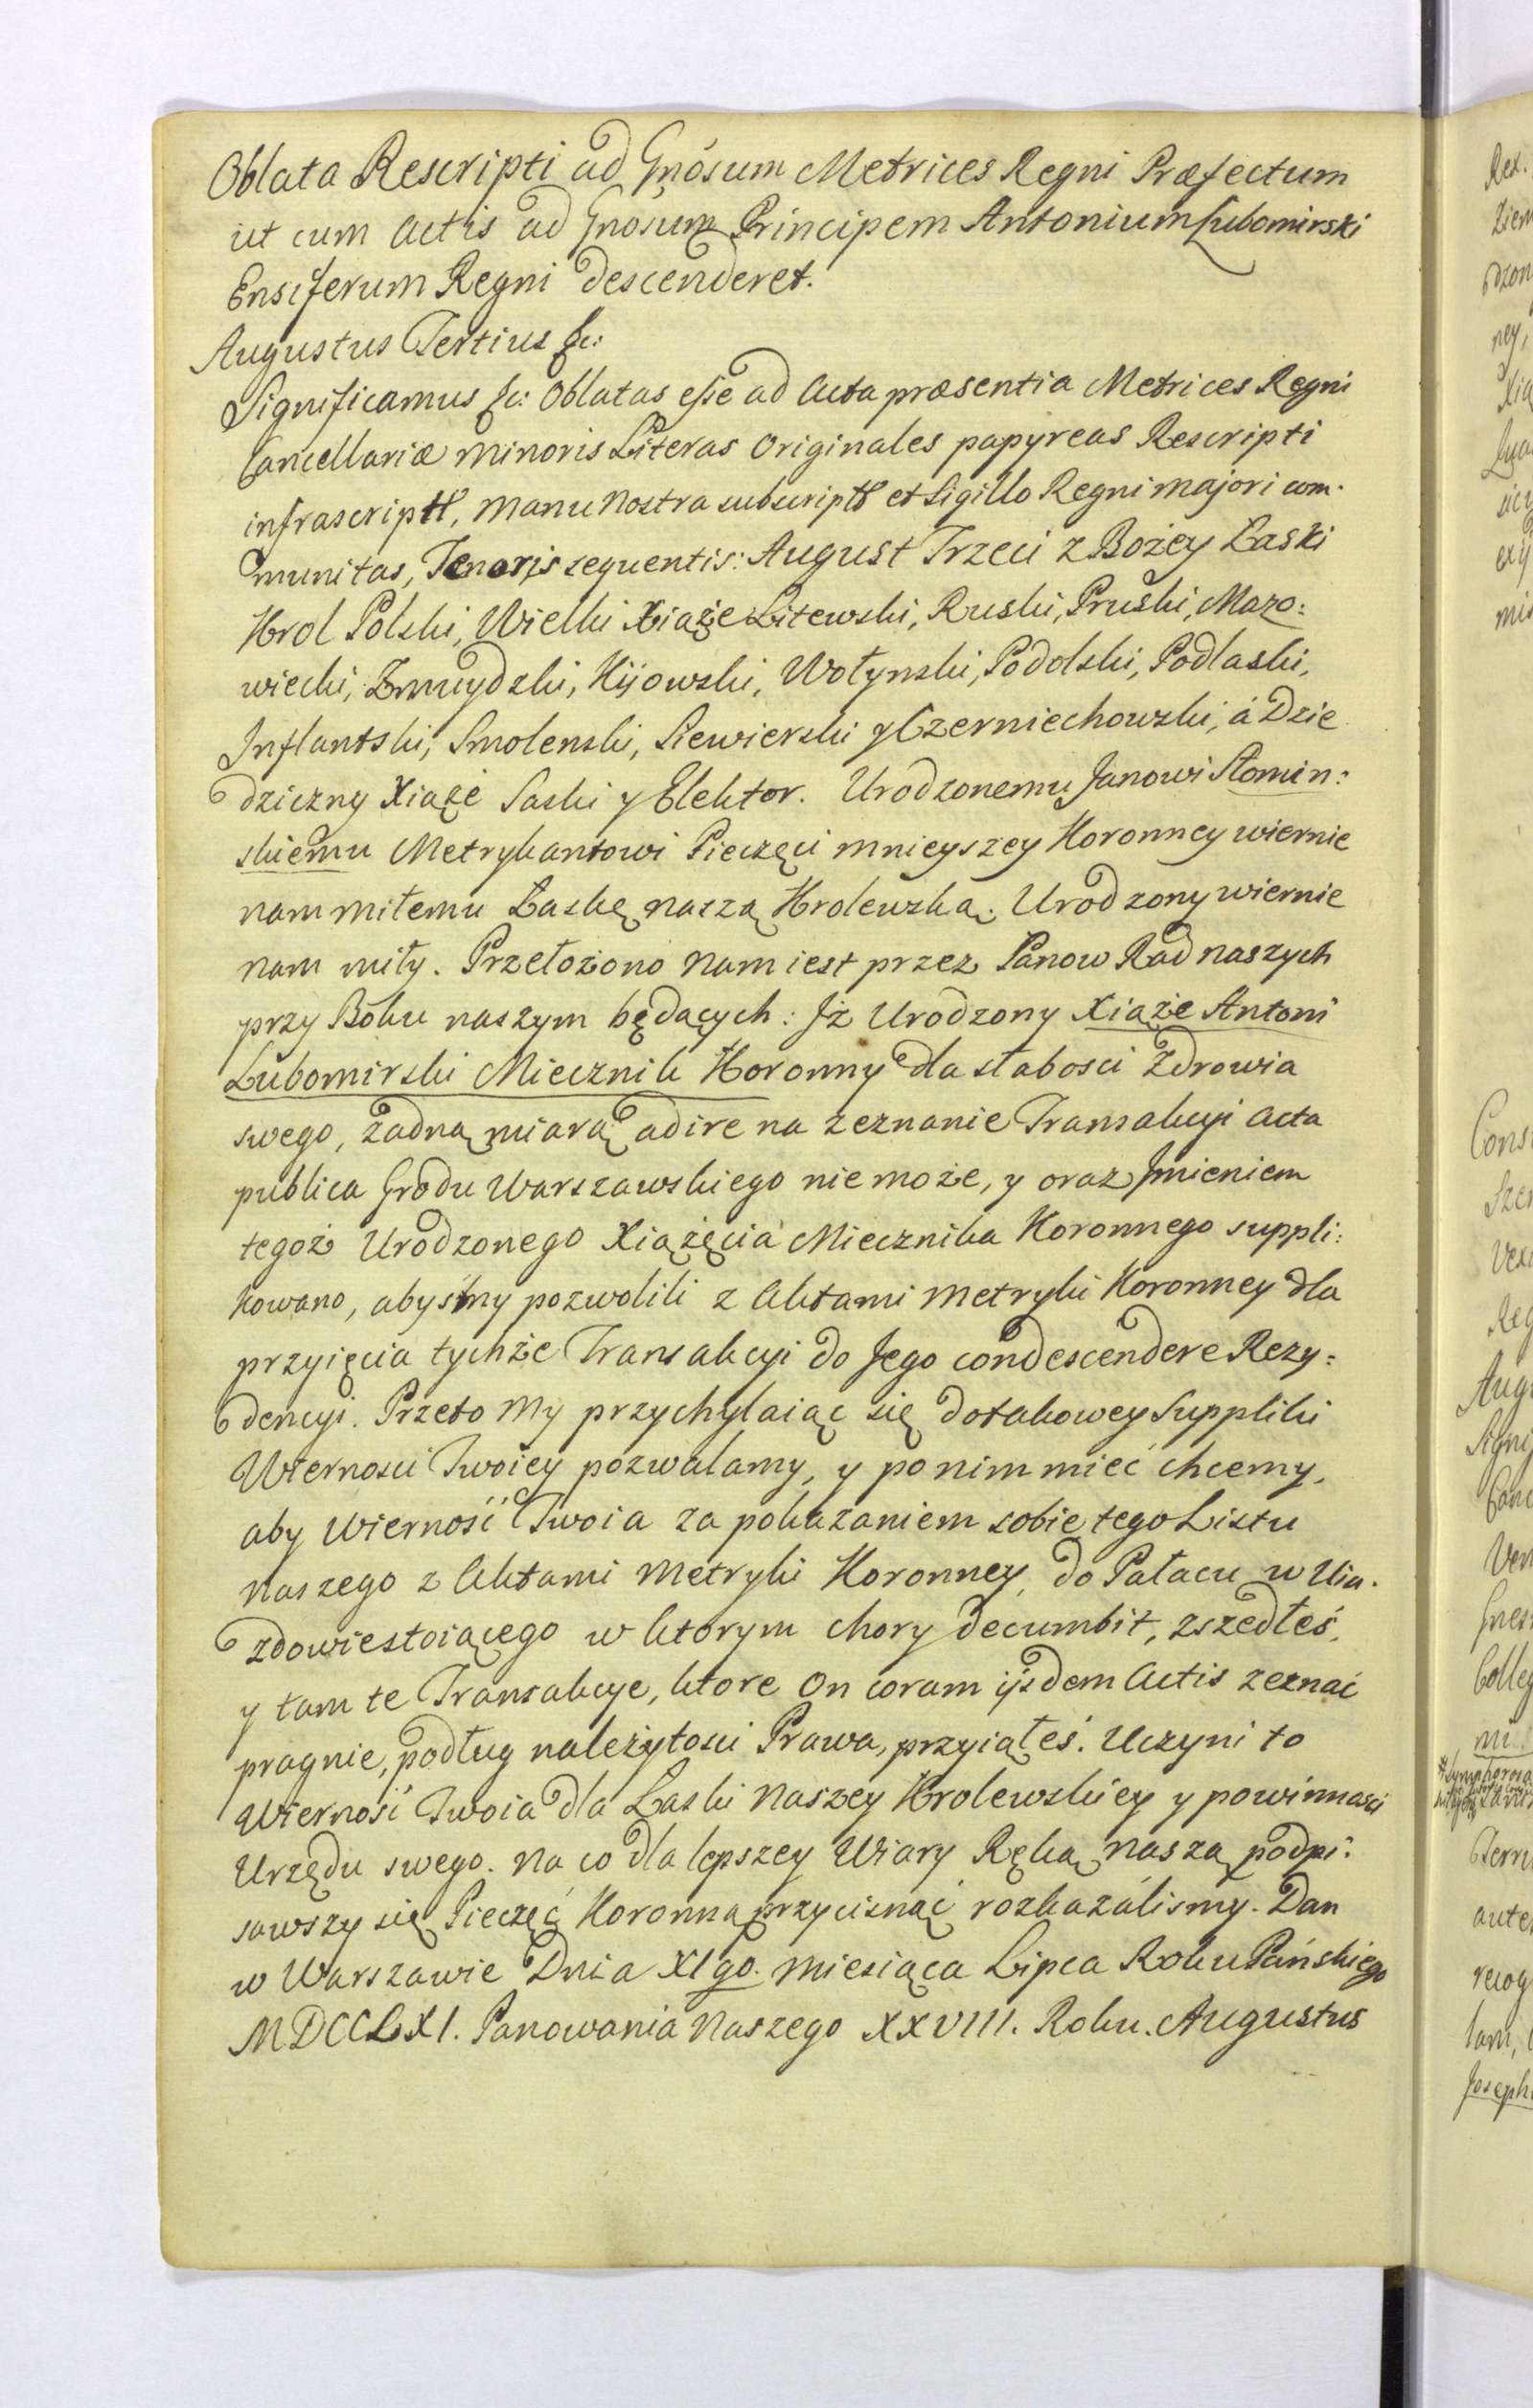 Oblata Rescripti ad Gnosum Metrices Regni Præfectum
ut cum Actis ad Gnosum Principem Antonium Lubomirski
Ensiferum Regni descenderet.
Augustus Tertius &c:
Significamus &c: Oblatas esse ad Acta præsentia Metrices Regni
Cancellariæ Minoris Literas Originales papyreas Rescripti
infrascripti, Manu Nostra subscriptas et Sigillo Regni majori com-
munitas, Tenoris sequentis: August Trzeci z Bożey Łaski
Krol Polski, Wielki Xiąże Litewski, Ruski, Pruski, Mazo:
wiecki, Zmuydzki, Kijowski, Wołynski, Podolski, Podlaski,
Inflantski, Smolenski, Siewierski y Czerniechowski, á Dzie
dziczny Xiąże Saski y Elektor. Urodzonemu Janowi Słomin:
skiemu Metrykantowi Pieczęci mnieyszey Koronney wiernie
nam miłemu Łaskę naszą Krolewską. Urodzony wiernie
nam miły. Przełożono Nam iest przez Panow Rad naszych
przy Boku naszym będących: Iż Urodzony Xiąże Antoni
Lubomirski Miecznik Koronny dla słabosci Zdrowia
swego, żadną miarą adire na zeznanie Transakcyi Acta
publica Grodu Warszawskiego nie może, y oraz Imieniem
tegoż Urodzonego Xiążęcia Miecznika Koronnego suppli:
kowano, abysmy pozwolili z Aktami Metryki Koronney dla
przyięcia tychże Transakcyi do Jego condescendere Rezy:
dencyi. Przeto My przychylaiąc się do takowey Suppliki
Wiernosci Twoiey pozwalamy, y po nim mieć chcemy,
aby Wierność Twoia za pokazaniem sobie tego Listu
Naszego z Aktami Metryki Koronney, do Pałacu w Uia-
zdowie stoiącego w ktorym chory decumbit, zszedłeś,
y tam te Transakcye, ktore On coram ijsdem Actis zeznać
pragnie, podług należytosci Prawa, przyiąłeś. Uczyni to
Wierność Twoia dla Łaski Naszey Krolewskiey y powinnosci
Urzędu swego. Na co dla lepszey Wiary Ręką Naszą podpi:
sawszy się Pieczęć Koronną przycisnąć rozkazálismy. Dan
w Warszawie Dnia XIgo. Miesiąca Lipca Roku Pańskiego
MDCCLXI. Panowania Naszego XXVIII. Roku. Augustus